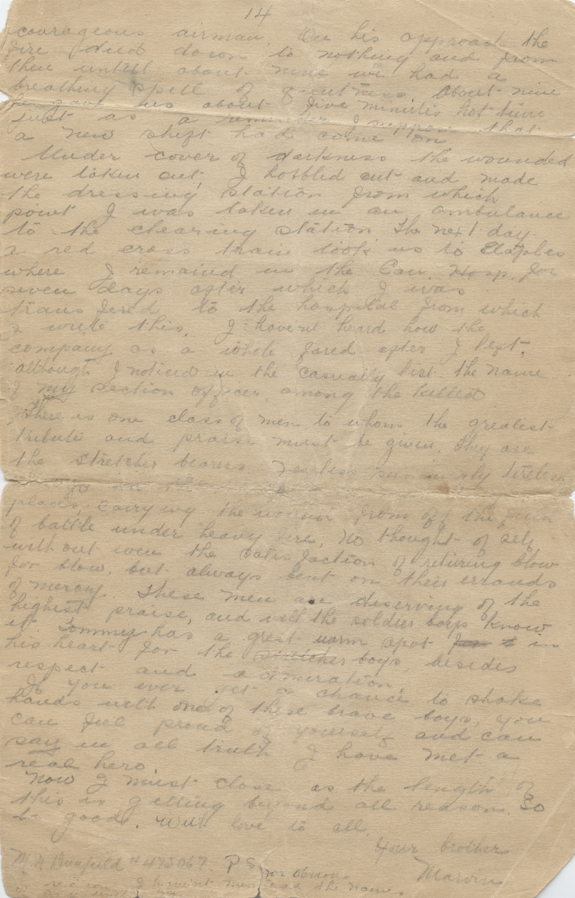 14
courageous airman. On his approach the
fire died down to nothing and from
then untill about nine we had a
breathing spell of quietness. About nine
gave us about five minutes hot fire
just as a reminder I suppose that
a new shift had come on.
Under cover of darkness the wounded
were taken out. I hobbled out and made
the dressing station from which
point I was taken in an ambulance
to the clearing station. The next day
a red cross train took us to Etaples
where I remained in the Can. Hosp. for
seven days after which I was
transfered to the hospital from which
I write this. I havent heard how the
company as a whole fared after I left.
although I noticed in the casualty list the name
of my section officer, among the killed
There is one class of men to whom the greatest
tribute and praise must be given. They are
the stretcher bearers. Fearless
go
places, carrying the wounded from off the
of battle under heavy fire, no thought of self
with out even the satisfaction of returning blow
for blow, but always bent on their errands
of mercy. These men are deserving of the
highest praise, and well the soldier boys know
it. Tommy has a great warm spot in
his heart for the boys, besides
respect and admiration.
If you ever get a chance to shake
hands with one of these brave boys, you
can feel proud of yourself and can
say in all truth I have met a
real hero.
Now I must close as the length of
this is getting beyond all reason. So
be good. With love to all,
Your brother
Marvin
P.S. for obvious
the names